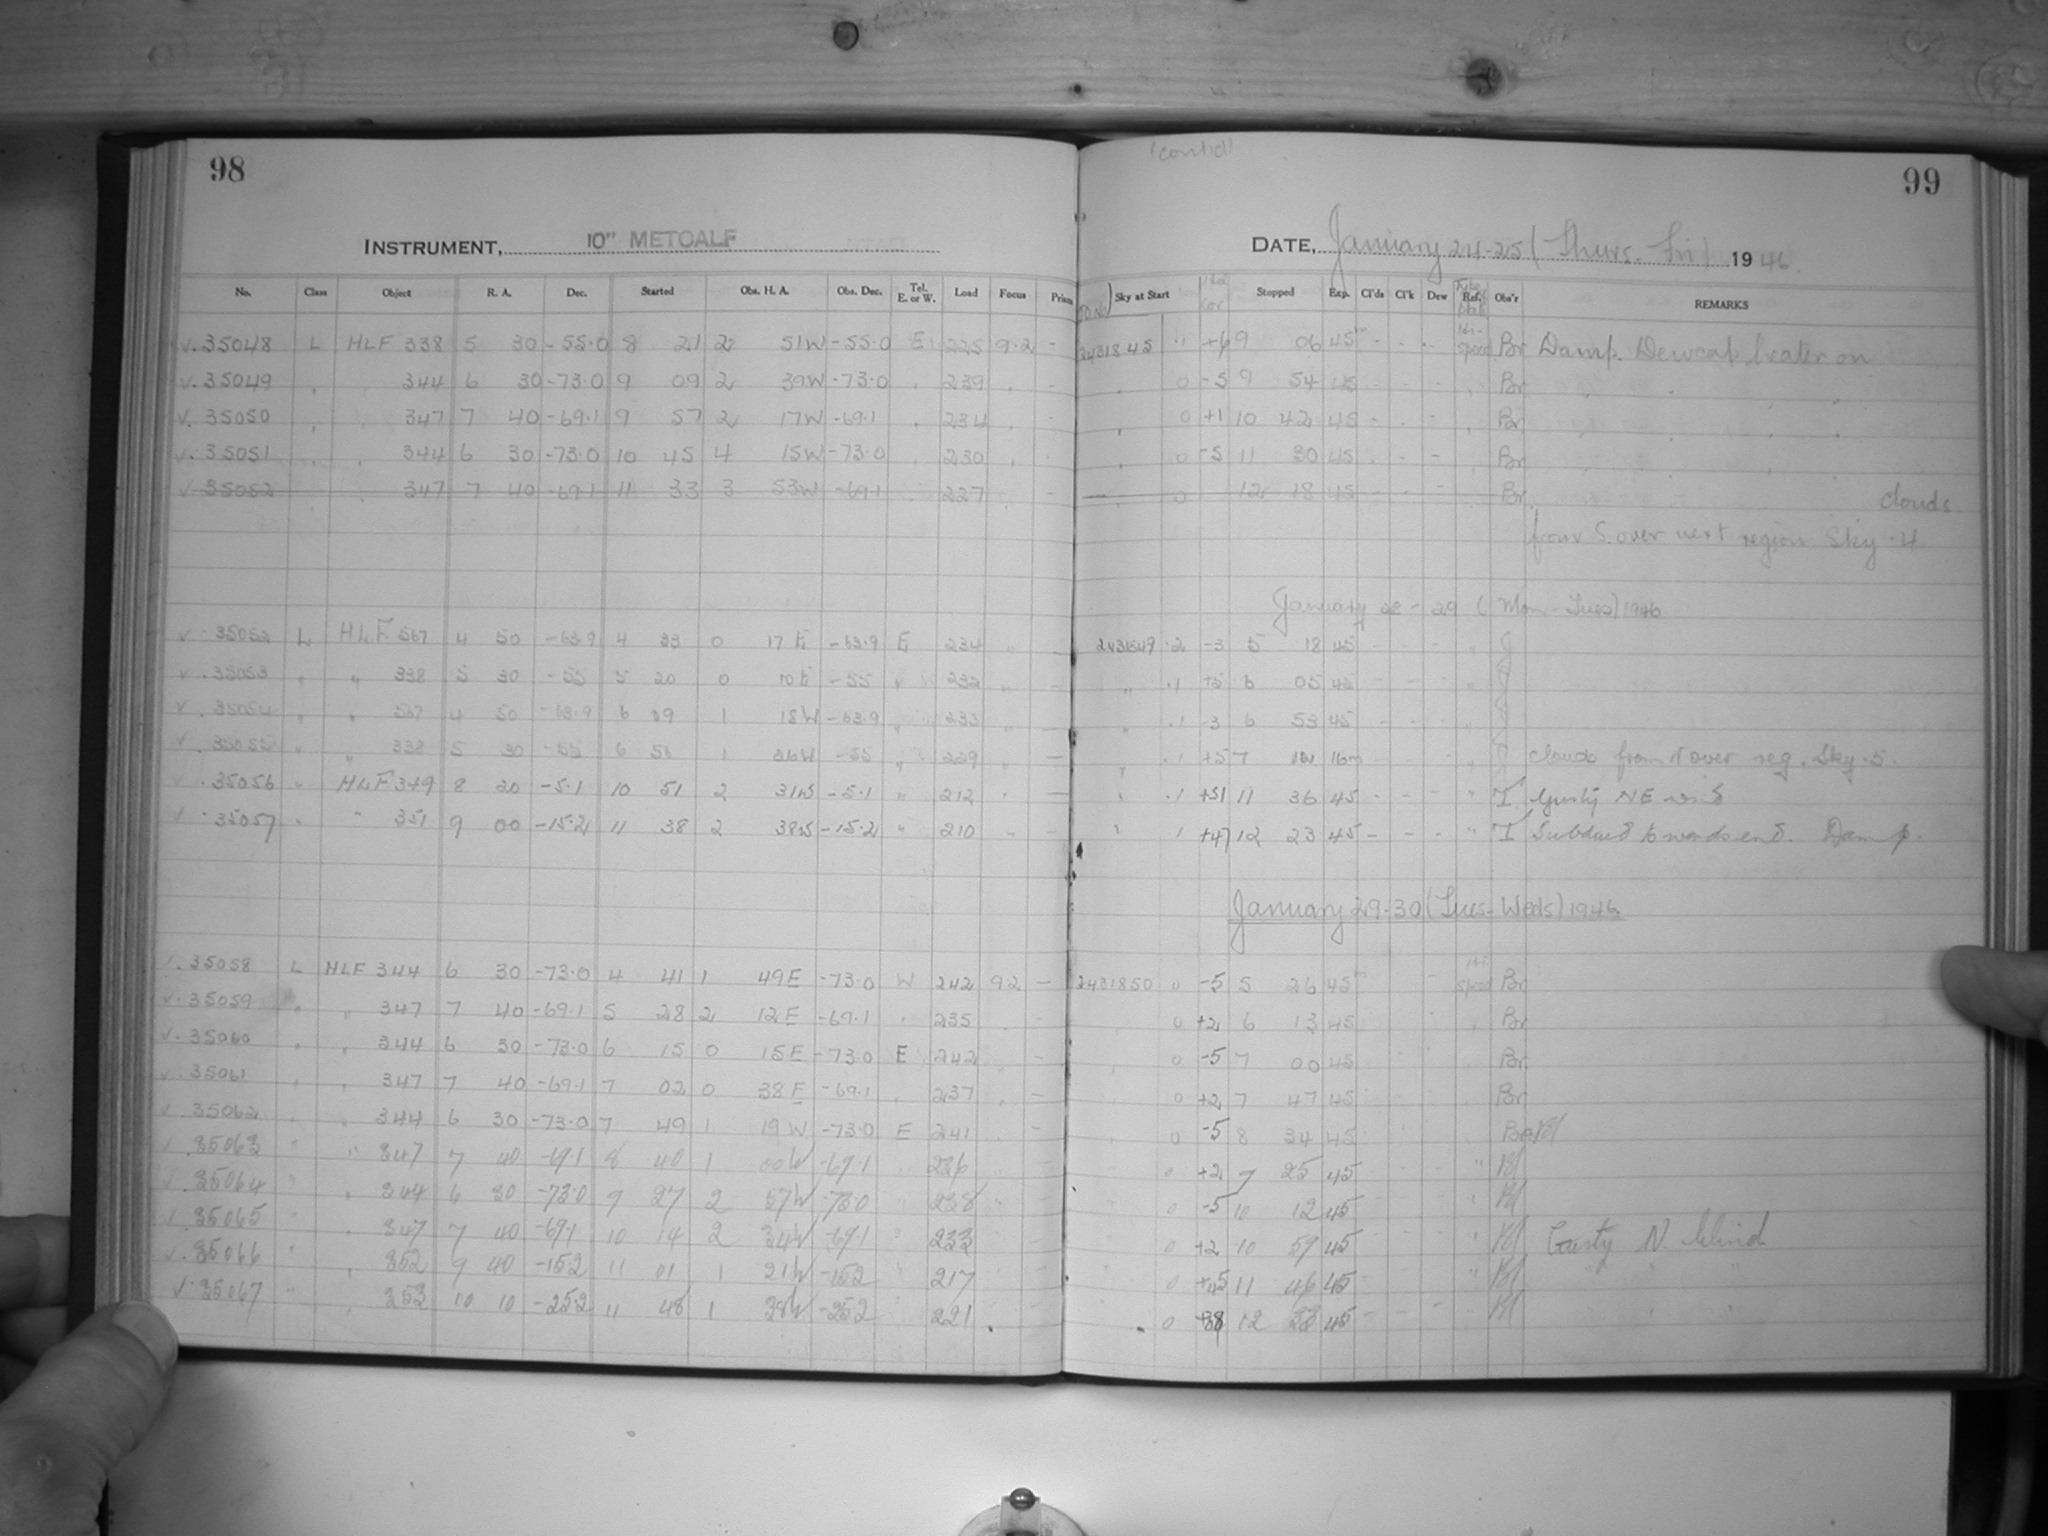 98
INSTRUMENT, 10" METCALF
No. Class Object R. A. Dec. Started Obs. H. A. Obs. Dec. Tel. E. or W. Load Focus Prism
v. 35048 L HLF 338 5 30 -55.0 8 21 2 51W -55.0 E 225 9.2 -
v. 35049 " " 344 6 30 -73.0 9 09 2 39W -73.0 " 239 " -
v. 35050 " " 347 7 40 -69.1 9 57 2 17W -69.1 " 234 " -
v. 35051 " " 344 6 30 -73.0 10 45 4 15W -73.0 " 230 " -
v 35052 " 347 7 40 -69.1 11 33 3 53W -69.1 " 227 -
v .35052 L HLF 567 4 50 -63.9 4 33 0 17 E -63.9 E 234 " -
v .35053 " " 338 5 30 -55 5 20 0 10 E -55 " 232 " -
v .35054 " " 567 4 50 -63.9 6 09 1 18W -63.9 " 233 "
v .35055 " " 338 5 30 -55 6 56 1 26W -55 " 229 " -
v .35056 " HLF 349 8 20 -5.1 10 51 2 31W -5.1 " 212 " -
v .35057 " " 351 9 00 -15.2 11 38 2 38W -15.2 " 210 - -
v. 35058 L HLF 344 6 30 -73.0 4 41 1 49E -73.0 W 242 9.2 -
v. 35059 " " 347 7 40 -69.1 5 28 2 12E -69.1 " 235 -
v. 35060 " " 344 6 30 -73.0 6 15 0 15E -73.0 E 242 -
v. 35061 " " 347 7 40 -69.1 7 02 0 38E -69.1 " 237 " -
v. 35062 " " 344 6 30 -73.0 7 49 1 19W -73.0 E 241 -
v. 35063 " " 347 7 40 -69.1 8 40 1 00W -69.1 " 226
v. 35064 " " 344 6 30 -73.0 9 27 2 57W -73.0 " 238
v. 35065 " " 347 7 40 -69.1 10 14 2 34W -69.1 " 233
v. 35066 " " 352 9 40 -15.2 11 01 1 21W -15.2 " 217
v. 35067 " " 353 10 10 -25.2 11 48 1 38W -25.2 221
(cont'd)
99
DATE, January 24-25 (Thurs. Fri) 1946.
JD No. Sky at Start Stopped Exp. Cl'ds Cl'k Dew Ref. Obs'r REMARKS
2431845 .1 +6 9 06 45m - - - Hi-speed Br Damp. Dewcap heater on
" 0 -5 9 54 45 - - - " Br " "
" 0 +1 10 42 45 - - - " Br " " "
" 0 -5 11 30 45 - - - Br " " "
0 12 18 45 - - - Br clouds
from S. over next region Sky .4
January 28-29 (Mon-Tues) 1946
2431849 .2 -3 5 18 45 - - - "
" .1 +5 6 05 45 - - - "
" .1 -3 6 53 45 - - - "
" .1 +5 7 16m " clouds from N over reg. Sky .5.
" .1 +51 11 36 45 - - - " T Gusty NE wind
" 1 +47 12 23 45 - - - " T Subdued towards end. Damp.
January 29-30 (Tues-Weds) 1946
2431850 0 -5 5 26 45m - Hi-speed Br
0 +2 6 13 45 " Br
0 -5 7 00 45 Br
0 +2 7 47 45 Br
0 -5 8 34 45
0 +2 9 25 45 - - - "
0 -5 10 12 45 - - - "
0 +2 10 59 45 - - - " Gusty N. Wind
0 +45 11 46 45 - - - " " " "
0 +38 12 33 45 - - - " " "